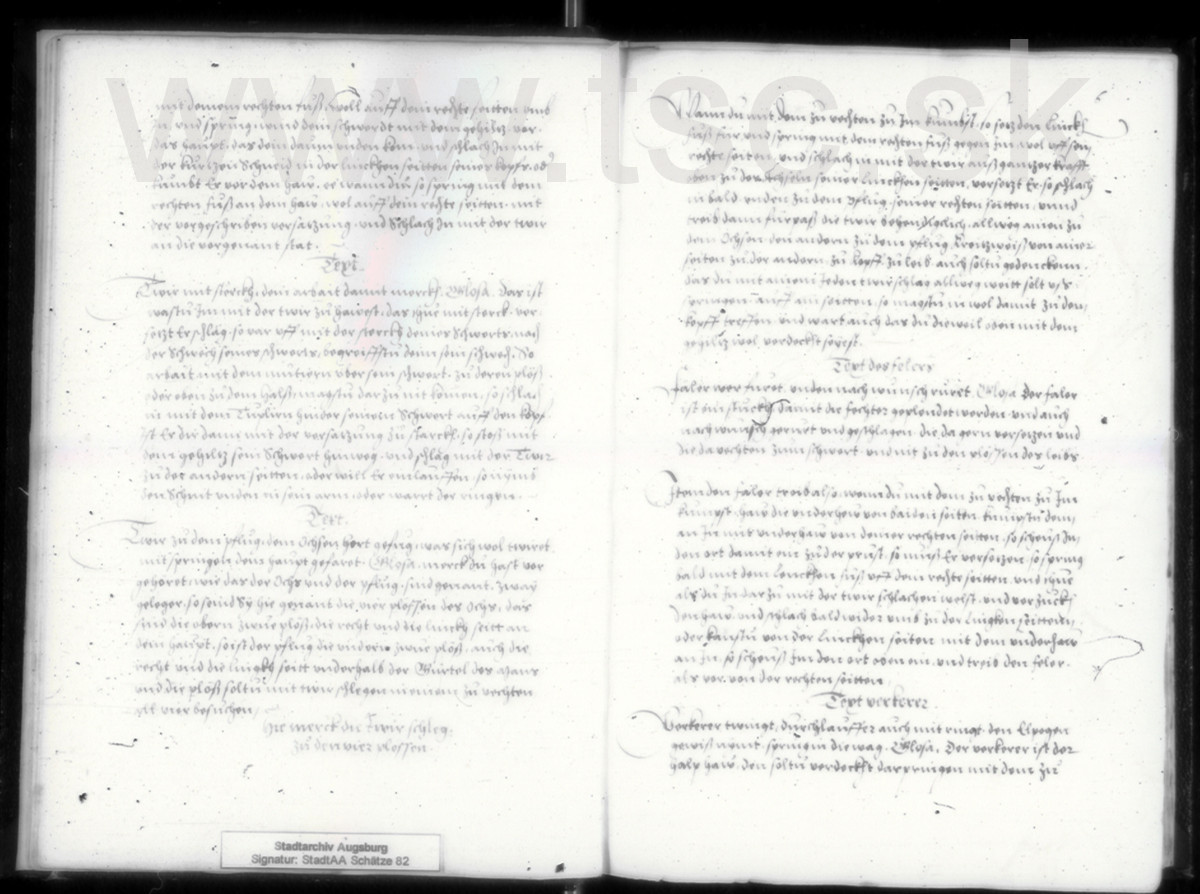 www.tsc.sk
mit deinem rechten fuß, woll auff dein rechte seitten umb
in, und sprung, wend dein schwerdt mit dem gehiltz vor
das haupt, das dein daum unden kom, und schlach In mit
der kurtzen schneid in der linckhen seitten seiner kopfs, od
kumbt Er vor dem haw, ee wann du, so spring mit dem
rechten fuß an dem haw, wol auff dein rechte seitten, mit
der vorgeschriben versatzung, und Schlach In mit der twir
an die vorgenant stat.
Text.
Twir mit sterckh, dein arbait damit merckh. Glosa. Das ist
wastu Im mit der twir zu hawest, das thue mit sterck, ver
setzt Er schlag, so var uff mit der sterckh deines Schwerts, nach
der Schwech seines schwerts, begreiffstu denn sein schwech, So
arbait mit dem mutiern uber sein schwert, zu deren plöß
oder oben zu dem halß, magstu darzu nit komen, so schlach
in mit dem Duplirn hinder seinem Schwert auff den kopf
Ist Er dir dann mit der versatzung zu starckh, so stoß mit
dem gehiltz sein Schwert hinweg, und schlag mit der Twir
zu der andern seitten, oder wiel Er einlauffen, so nymb
den Schnit unden in sein arm, oder wartt der ringen.
Text.
Twir zu dem pflug, dem Ochsen hert gefug, war sich wol twiret
mit springen, dem haupt gefaret. Glosa, merck du hast vor
gehoret, wie das der Ochs und der pflug, sind genant, zway
geleger, so seind Sy hie genant die vier plossen des Ochs, das
sind die obern zwue plöß, die recht und die lincky seitt an
dem haupt, so ist der pflug die undern zwue plöß, auch die
recht und die lingkh seitt underhalb der Gürtel des Mans
und die plöß soltu mit twir schlegen in einem zu vechten
all vier besuchen.
Hie merck die twir schleg,
zu den vier plossen
Wann du mit dem zu vechten zu Im kumbst, so setz den linckh
fuß für und spring mit dem rechten fuß gegen im wol uff sein
rechte seiten, und schlach in mit der twir auß gantzer krafft
oben zu der Achseln seiner linckhen seitten, versetzt Er, so schlach
in bald unden zu dem pflug, seiner rechten seitten, unnd
treib dann furpaß die twir behendigklich, allweg ainen zu
dem Ochsen, den andern zu dem pflug, kreutzweiß von ainer
seiten zu der andern, zu kopff zu leib, auch soltu gedenckhenn
das du mit ainem Jeden twir schlag allweg weitt solt uß
springen, auff ain seitten, so magstu in wol damit zu dem
kopff treffen, und wart auch das du dieweil oben mit dem
gehiltz wol verdeckht seyest.
Text des felers
Faler wer furet, unden nach wunsch ruret, Glosa Der faler
ist ein stuckh, damit die fechter geplendet werden, und auch
nach wunsch gerurt und geschlagen, die da gern versetzen und
die da vechten zum schwert, und nit zu den plossen des leibs.
Item den faler treib also, wenn du mit dem zu vechten zu Im
kumpst, haw die underhew von baiden seiten, kumpstu dem
an In mit underhaw von deiner rechten seitten, so scheuß In
den ort damit ein zu der prust, so muß Er versetzen, so spring
bald mit dem Linckhen fuß uff dein rechte seitten, und thue
als du In darzu mit der twir schlachen welst, und verzückh
den haw, und schlach bald wider umb zu der lingken seitten,
oder kumstu von der linckhen seiten mit dem underhaw
an In, so scheuß Im den ort oben ein, und treib den feler,
als vor, von der rechten seitten.
Text verkerer
Verkerer twingt, durchlauffer auch mit ringt, den Elpogen
gewiß nymt, spring in die wag. Glosa. Der verkerer ist der
halp haw, den soltu verdeckht darpringen mit dem zu
Stadtarchiv Augsburg
Signatur: StadtAA Schätze 82